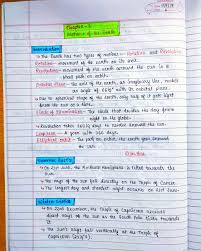 Chapter - 3
Motions of the Earth
Introduction
→ The Earth has two types of motions - Rotation and Revolution
Rotation - movement of the earth on its axis.
Revolution - movement of the earth around the sun in a
fixed path or orbit.
Orbital Plane - the axis of the earth, an imaginary line, makes
an angle of 66½° with its orbital plane.
→ Due to spherical shape of the earth, only half of it gets light
from the sun at a time.
Circle of Illumination - The circle that divides the day from
night on the globe.
→ Revolution takes 365¼ days to revolve around the sun.
Leap Year - A year with 366 days.
Elliptical orbit - The path on orbit, the earth goes around
the sun.
Summer Solstice
→ On 21st June, the Northern Hemisphere is tilted towards the
sun.
→ The rays of the sun fall directly on the Tropic of Cancer.
→ The longest day and shortest night occurs on 21st June.
Winter Solstice
→ On 22nd December, the Tropic of Capricorn receives
direct rays of the sun as the South Pole tilts towards
it.
→ The sun's rays fall vertically at the Tropic of
Capricorn (23½°S).